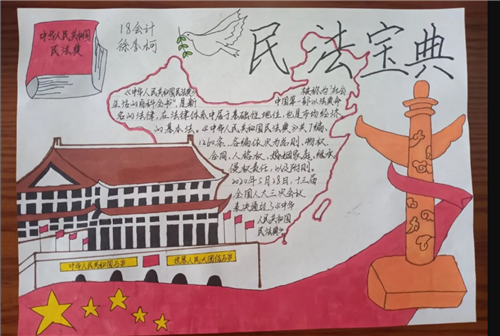 中华人民共和国
民法典
18会计
民法宝典
《中华人民共和国民法典》被称为“社会
生活的百科全书”,是新中国第一部以法典命
名的法律,在法律体系中居于基础性地位,也是市场经济
的基本法。《中华人民共和国民法典》共7编、
1260条,各编依次为总则、物权、
合同、人格权、婚姻家庭、继承、
侵权责任,以及附则。
2020年5月28日,十三届
全国人大三次会议
表决通过了《中华
人民共和国
民法典》
中华人民共和国万岁
世界人民大团结万岁